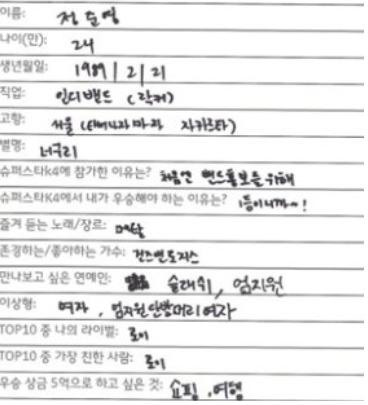 이름: 정준영
나이(만): 24
생년월일: 1989 / 2 / 21
직업: 인디밴드 (락커)
고향: 서울 (태어나자마자 자카르타)
별명: 너구리
슈퍼스타k4에 참가한 이유는? 처음엔 밴드홍보를 위해
슈퍼스타K4에서 내가 우승해야 하는 이유는? 1등이니까~!
즐겨 듣는 노래/장르: 메탈
존경하는/좋아하는 가수: 건즈앤로지스
만나보고 싶은 연예인: 슬래쉬, 엄지원
이상형: 여자, 엄지원 단발머리 여자
TOP10 중 나의 라이벌: 로이
TOP10 중 가장 친한 사람: 로이
우승 상금 5억으로 하고 싶은 것: 쇼핑, 여행